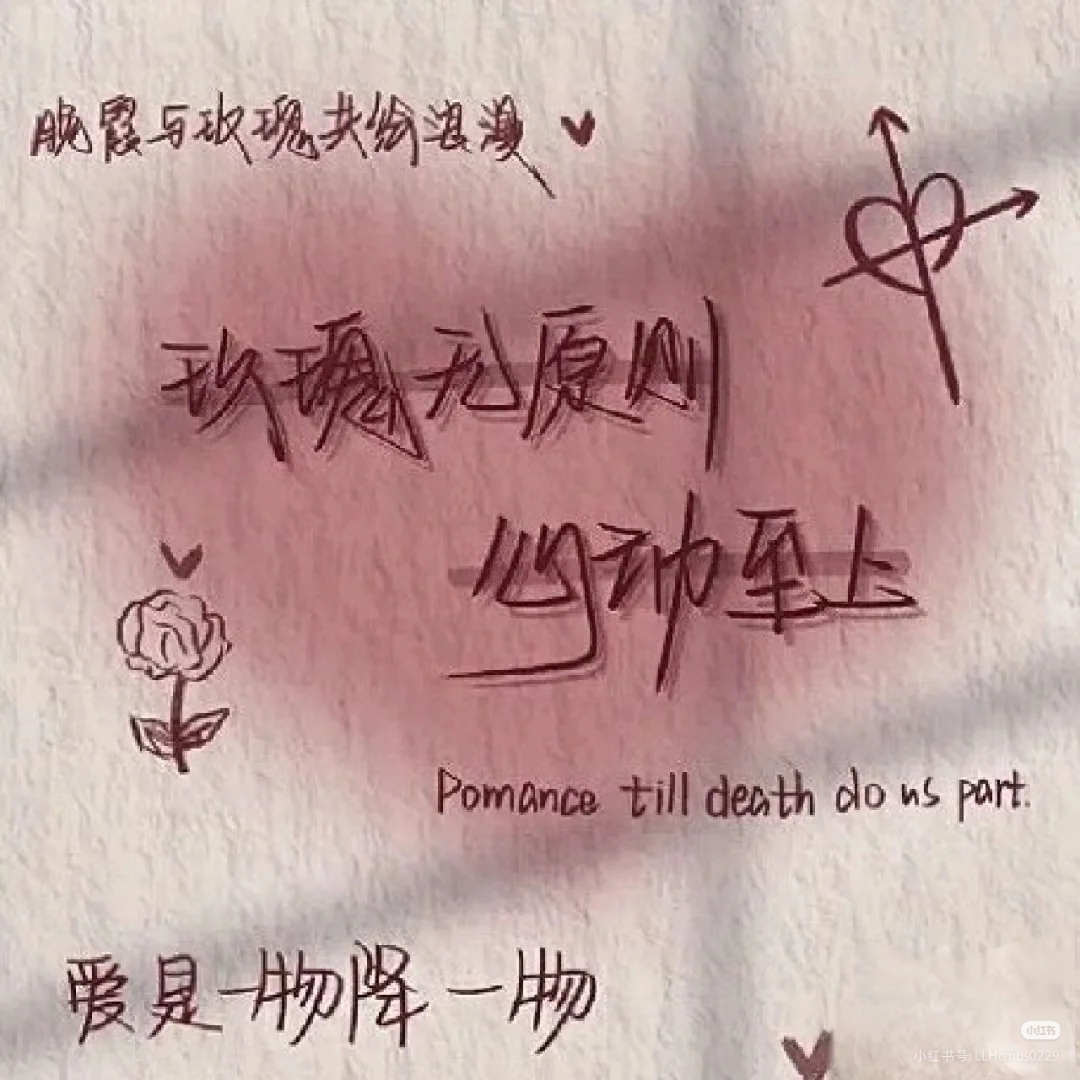 晚霞与玫瑰共绘浪漫
玫瑰无原则
心动至上
Pomance till death do us part.
爱是一物降一物
小红书